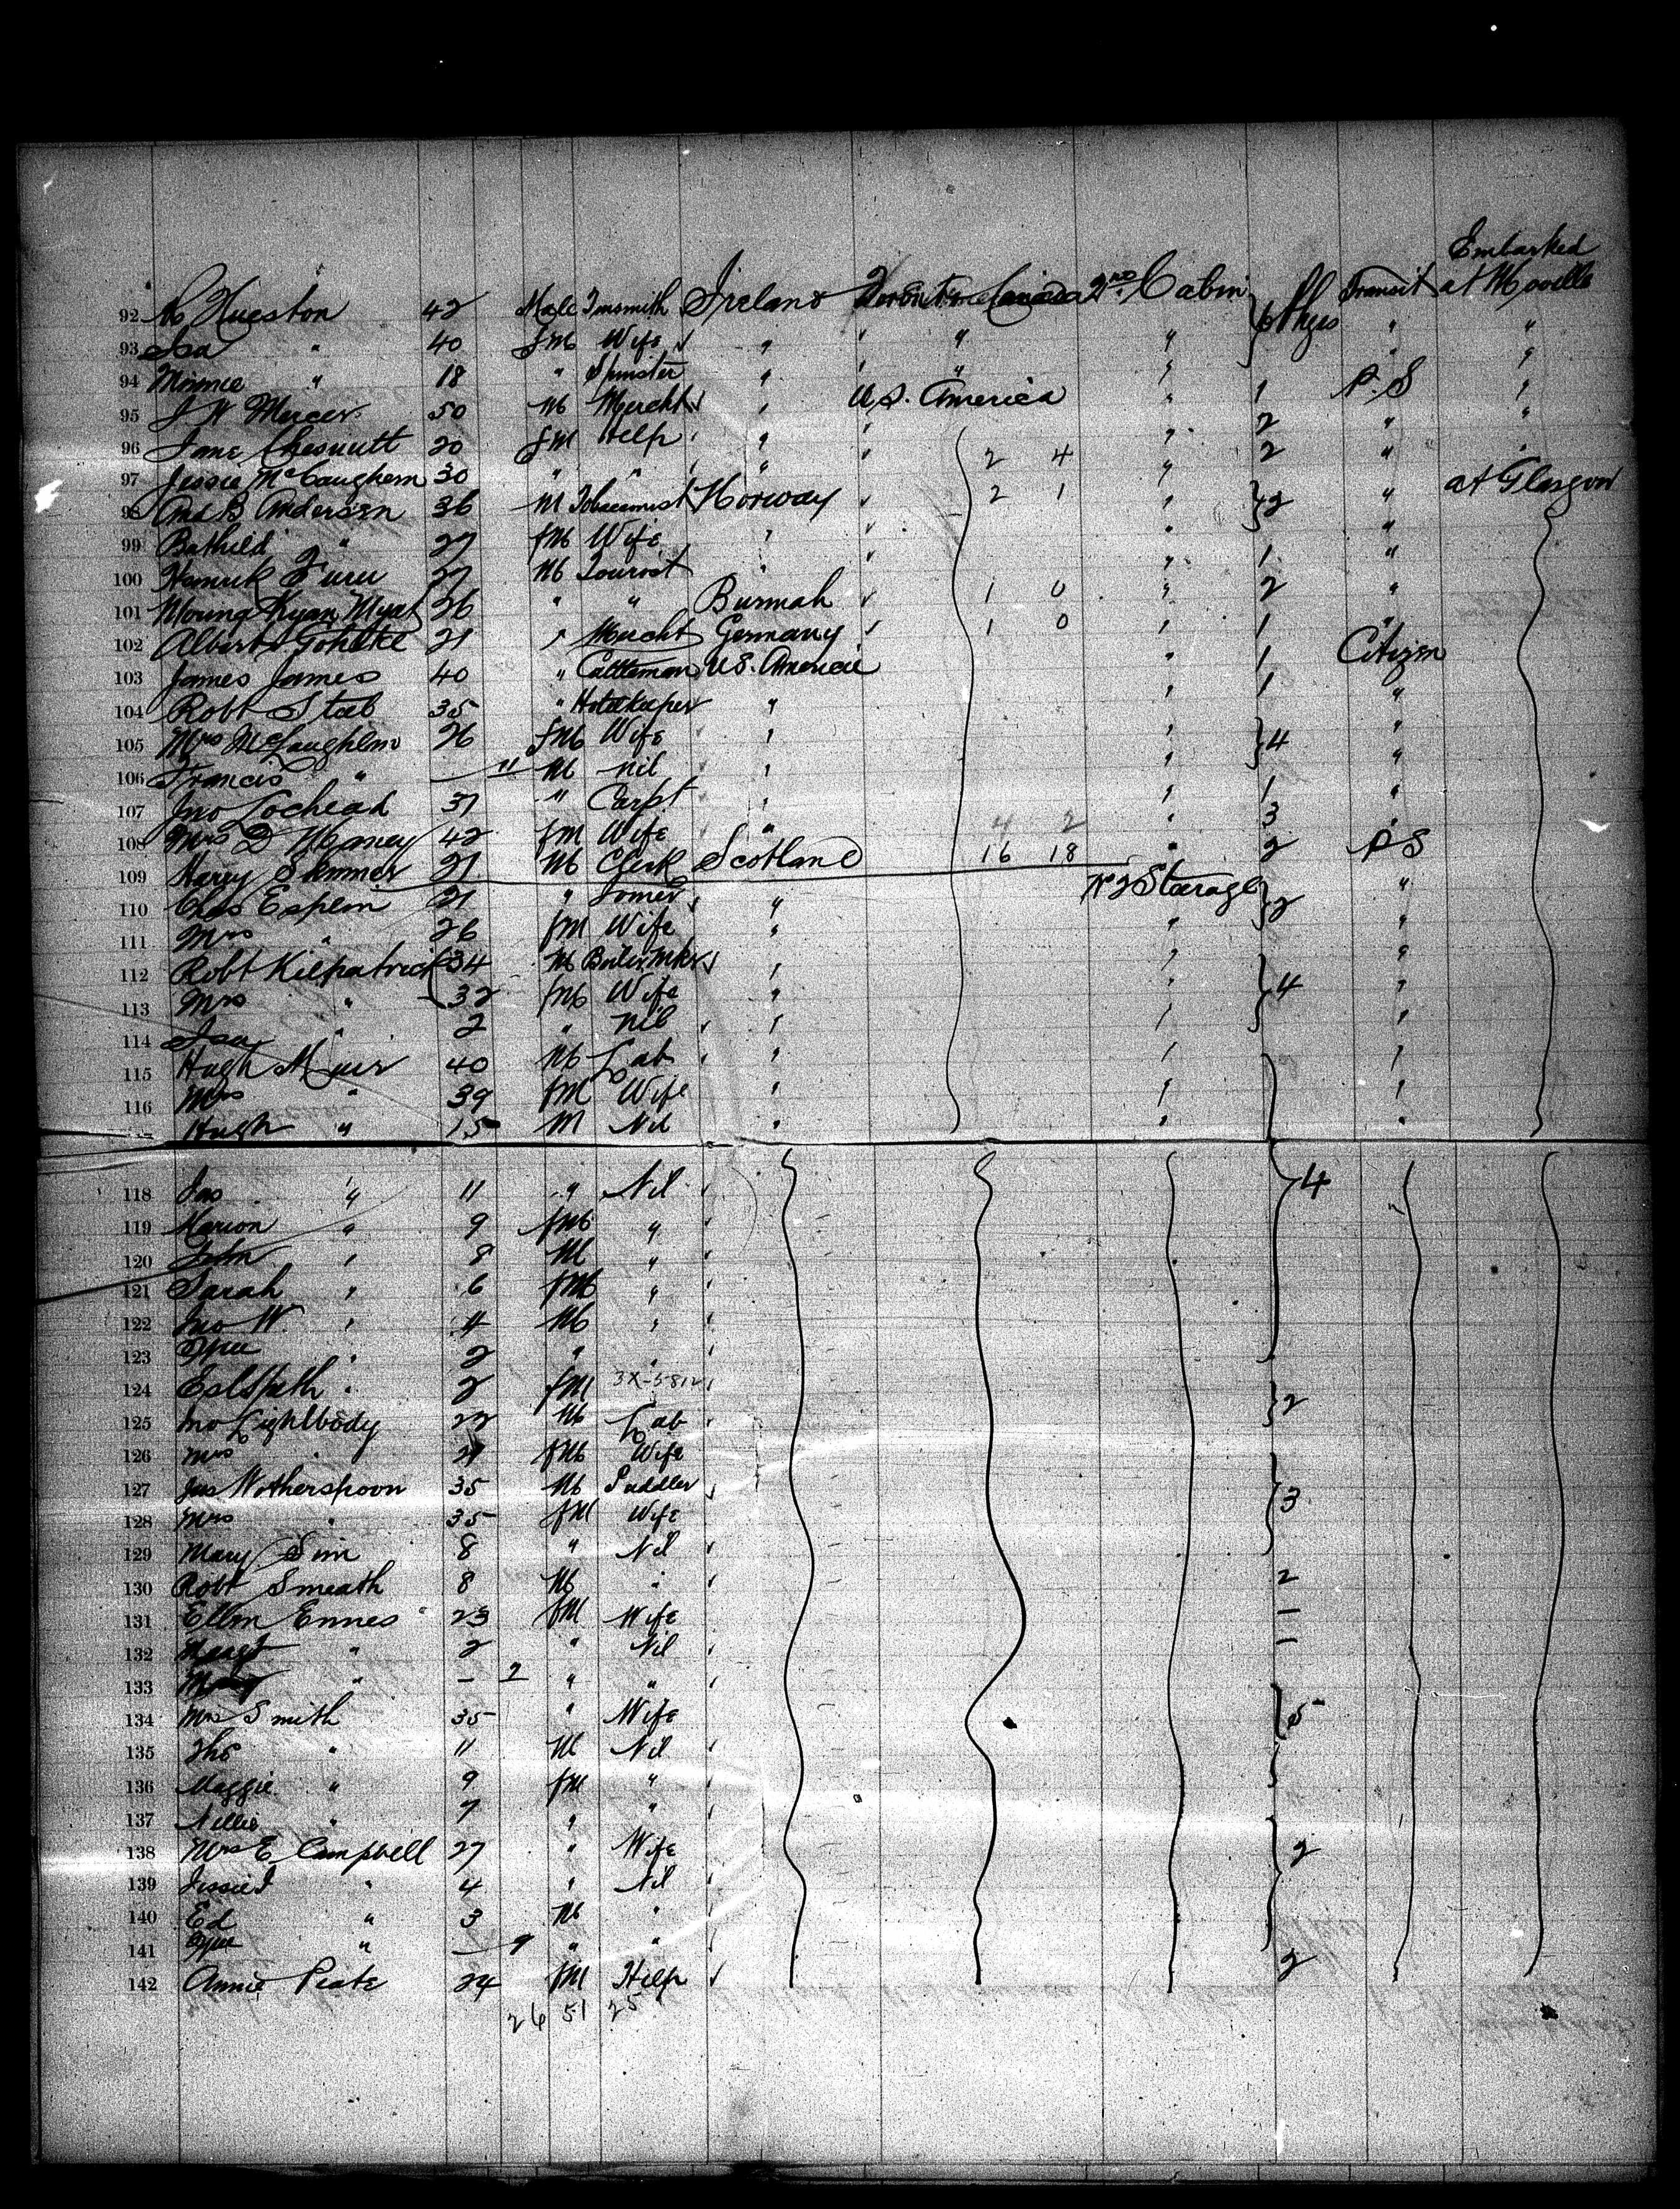 Embarked
92 Hueston 42 Male Tinsmith Ireland Canada 2nd Cabin Transit at Moville
93 Isa " 40 fM Wife " " " " "
94 Minnie " 18 " Spinster " " " "
95 J W Mercer 50 M Mercht " U.S. America " 1 P.S "
96 Jane Chesnutt 20 fM Help " " 2 " "
97 Jessie McCaughern 30 " " " 2 4 " 2 " "
98 And B Andersen 36 M Tobacconist Norway 2 1 " 2 " at Glasgow
99 Bathild " 27 fM Wife " " "
100 Furu 27 M Tourist " " 1 "
101 Moung Kyan Myat 26 " " Burmah 1 0 " 2 "
102 Albert Gohltke 21 " Mercht Germany 1 0 " 1 "
103 James James 40 " Cattleman U.S. America " 1 Citizen
104 Robt Steeb 35 " Hotelkeeper " " 1 "
105 Mrs McLaughlin 26 fM Wife " " 4 "
106 Francis " 11 M nil " " "
107 Jno Lochead 37 " Carpt " " 1 "
108 Mrs D 42 fM Wife " 4 2 " 3 "
109 Harry Skinner 21 M Clerk Scotland 16 18 " 2 P S
110 Chas Esplin 21 " " Steerage 2 "
111 Mrs " 26 fM Wife " " "
112 Robt Kilpatrick 34 M Boiler Mkr " " "
113 Mrs " 32 fM Wife " " 4 "
114 Isa " 2 " Nil " " "
115 Hugh Muir 40 M Lab " " "
116 Mrs " 39 fM Wife " " "
Hugh " 15 M Nil " " "
118 Jas " 11 " Nil 4
119 Marion " 9 fM "
120 John " 8 M "
121 Sarah " 6 fM "
122 Jno W " 4 M "
123 " 2 " "
124 Eslspeth " 2 fM 3X-5812
125 Jno Lightbody 22 M Lab 2
126 Mrs " fM Wife
127 Jas Wotherspoon 35 M Puddler
128 Mrs " 35 fM Wife 3
129 Mary Sim 8 " Nil
130 Robt Smeath 8 M " 2
131 Ellen Ennes 23 fM Wife —
132 " 2 " Nil —
133 " — 2 " "
134 Mrs Smith 35 " Wife 5
135 Tho " 11 M Nil
136 Maggie " 9 fM "
137 Nellie " 7 " "
138 Mrs E Campbell 27 " Wife 2
139 Jessie " 4 " Nil
140 Ed " 3 M "
141 " — 9 " "
142 Annie Peate 24 fM Help 2
26 51 25